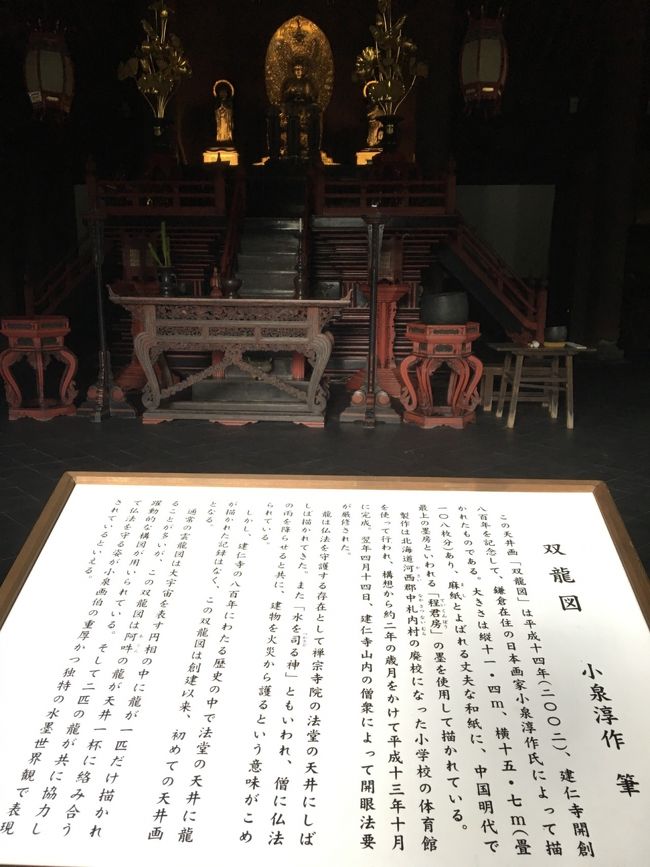 双龍図
小泉淳作 筆
この天井画「双龍図」は平成十四年(二〇〇二)、建仁寺開創
八百年を記念して、鎌倉在住の日本画家小泉淳作氏によって描
かれたものである。大きさは縦十一・四m、横十五・七m(畳
一〇八枚分)あり、麻紙とよばれる丈夫な和紙に、中国明代で
最上の墨房といわれる「程君房」の墨を使用して描かれている。
製作は北海道河西郡中札内村の廃校になった小学校の体育館
を使って行われ、構想から約二年の歳月をかけて平成十三年十月
に完成。翌年四月十四日、建仁寺山内の僧衆によって開眼法要
が厳修された。
龍は仏法を守護する存在として禅宗寺院の法堂の天井にしば
しば描かれてきた。また「水を司る神」ともいわれ、僧に仏法
の雨を降らせると共に、建物を火災から護るという意味がこめ
られている。
しかし、建仁寺の八百年にわたる歴史の中で法堂の天井に龍
が描かれた記録はなく、この双龍図は創建以来、初めての天井画
となる。
通常の雲龍図は大宇宙を表す円相の中に龍が一匹だけ描かれ
ることが多いが、この双龍図は阿吽の龍が天井一杯に絡み合う
躍動的な構図が用いられている。そして二匹の龍が共に協力し
て仏法を守る姿が小泉画伯の重厚かつ独特の水墨世界観で表現
されているといえる。